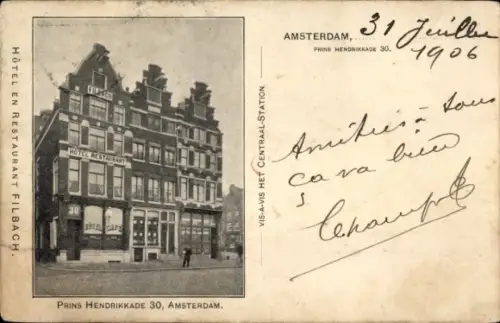 HÔTEL EN RESTAURANT FILBACH.
FILBACH
HOTEL RESTAURANT
30
CAFÉ
PRINS HENDRIKKADE 30, AMSTERDAM.
VIS-A-VIS HET CENTRAAL-STATION.
AMSTERDAM, 31 Juillet
PRINS HENDRIKKADE 30. 1906
Amitiés à tous
ça va bien